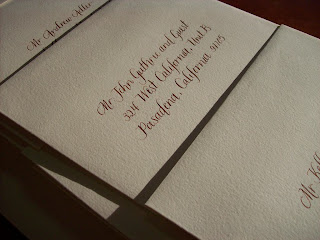 Mr. Andrew
Mr. John Guthrie and Guest
324 West California, Unit B
Pasadena, California 91105
Mr. Kell